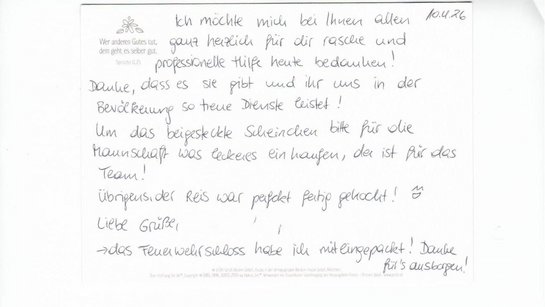 10.4.26
Ich möchte mich bei Ihnen allen
Wer anderen Gutes tut,
dem geht es selber gut.
Sprüche 11,25
ganz herzlich für dir rasche und
professionelle Hilfe heute bedanken!
Danke, dass es sie gibt und ihr uns in der
Bevölkerung so treue Dienste leistet!
Um das beigesteckte Scheinchen bitte für die
Mannschaft was leckeres einkaufen, der ist für das
Team!
Übrigens, der Reis war perfekt fertig gekocht!
Liebe Grüße,
→ das Feuerwehrschloss habe ich miteingepackt! Danke
für's ausborgen!